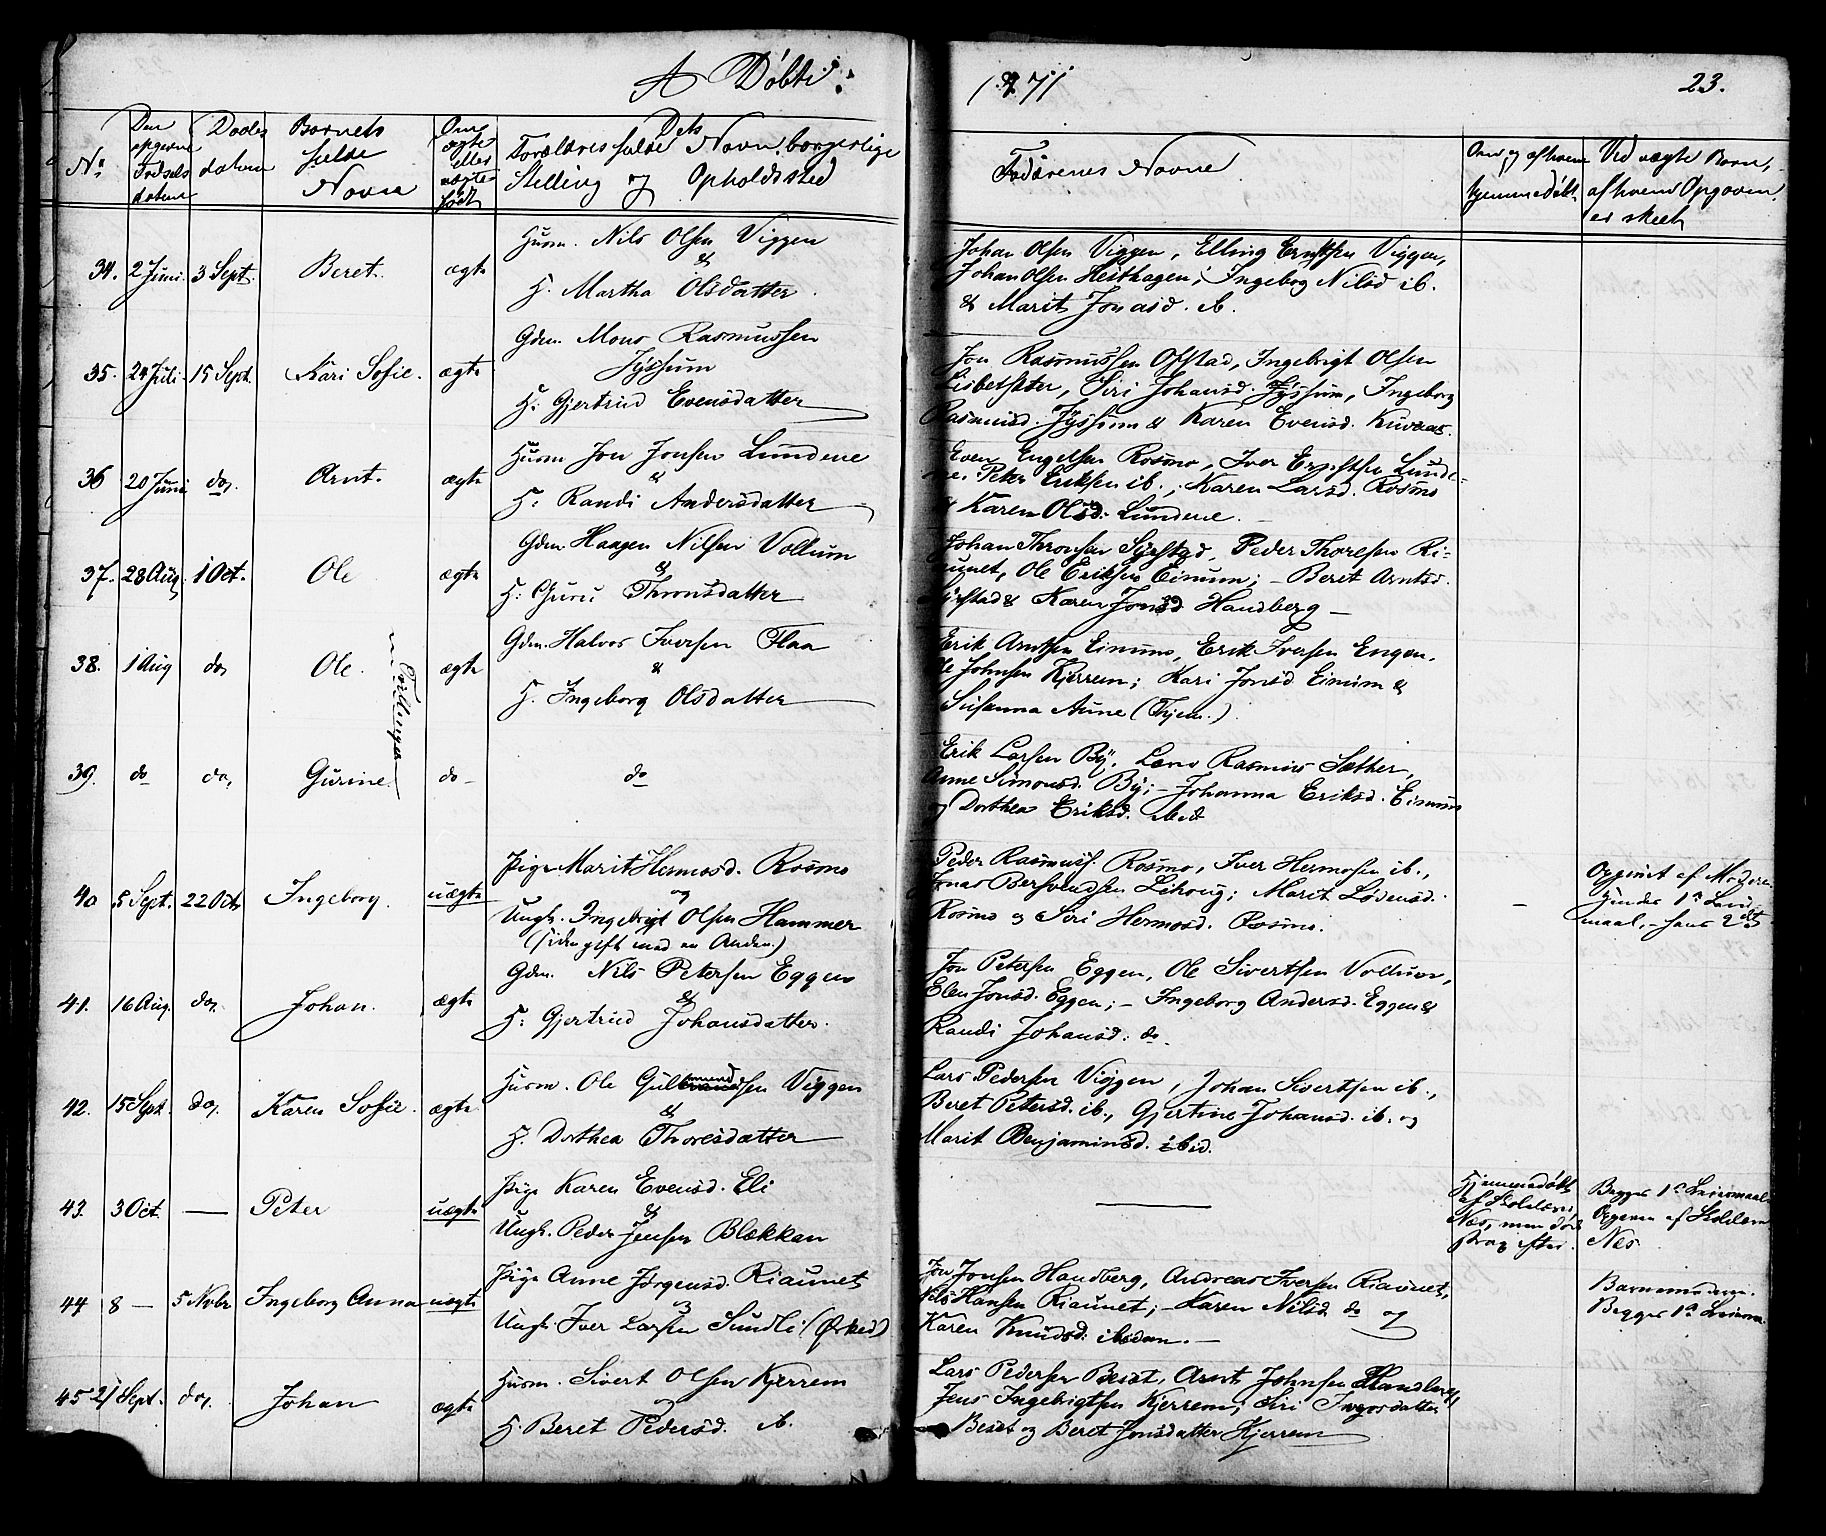 A Döbte.
1871
23.
No
Den opgivne Fødsels datum
Daabs datum
Barnets fulde Navn
Om ægte eller uægte født
Dets Forældres fulde Navn, borgerlige Stilling og Opholdssted
Faddrenes Navne
Om og af hvem hjemmedøbt
Ved uægte Børn, af hvem Opgaven er skeet
34. 2 Juni. 3 Sept. Beret. ægte
Husm. Nils Olsen Viggen
&
H. Martha Olsdatter
Johan Olsen Viggen, Elling Erntsen Viggen,
Johan Olsen Hesthagen; Ingeborg Nilsd ib.
& Marit Jonasd. ib.
35. 24 Juli. 15 Sept. Kari Sofie. ægte
Gdm. Mons Rasmussen
Jyssum
H. Gjertrud Evensdatter
Jon Rasmussen Ofstad, Ingebrigt Olsen
Lisbetsæter, Siri Johansd. Jyssum, Ingeborg
Rasmusd. Jyssum & Karen Evensd. Kuvaas.
36 20 Juni do, Arnt. ægte
Husm Jon Jonsen Lundene
&
H. Randi Andersdatter
Even Engelsen Rosmo, Iver Erntsen Lunde-
ne. Peter Eriksen ib.; Karen Larsd. Rosmo
& Karen Olsd. Lundene.
37. 28 Aug. 1 Oct. Ole ægte
Gdm. Haagen Nilsen Vollum
&
H. Guru Thronsdatter
Johan Thronsen Syrstad, Peder Thoresen Ri-
aunet, Ole Eriksen Eimum; - Beret Arntsd.
Syrstad & Karen Jonsd Handberg -
38. 1 Aug do, Ole. ægte
Tvillinger
Gdm. Halvor Iversen Flaa
&
H. Ingeborg Olsdatter
Erik Arntsen Eimum, Erik Iversen Engen,
Ole Johnsen Kjerrem; Kari Jonsd Eimum &
Susanna Aune (Hjem.)
39. do do, Gurine do- do
Erik Larsen By, Lars Rasmus Sæther,
Anne Simonsd. By; - Johanna Eriksd. Eimum
og Dorthea Eriksd. ibid
40 5 Sept. 22 Oct. Ingeborg. uægte
Pige Marit Hermosd. Rosmo
og
Ungk. Ingebrigt Olsen Hammer
(siden gift med en Anden.)
Peder Rasmuss. Rosmo, Iver Hermosen ib.,
Jonas Bersvendsen Lihoug; Marit Lødensd.
Rosmo og Siri Hermosd. Rosmo.
-
Opgivet af Moderen,
hendes 1ste Leier-
maal, - hans 2det
41. 16 Aug. do, Johan. ægte
Gdm. Nils Petersen Eggen
&
H: Gjertrud Johansdatter.
Jon Petersen Eggen, Ole Sivertsen Vollum,
Elen Jonsd. Eggen; - Ingeborg Andersd. Eggen &
Randi Johansd. do.
42. 15 Sept. do, Karen Sofie. ægte
Husm. Ole Gulbrandsen Viggen
&
H. Dorthea Thoresdatter
Lars Pedersen Viggen, Johan Sivertsen ib.,
Beret Petersd. ib., Gjertine Johansd. ib. og
Marit Benjaminsd. ibid.
43. 3 Oct. — Peter uægte
Pige Karen Evensd. Eli
&
Ungk. Peder Jensen Blækkan
——
Hjemmedøbt
af Skolelærer
Næs, men døde
strax efter.
Begges 1ste Leiermaal
Opgiven af Skolelærer
Næs
44 8 — 5 Novbr Ingeborg Anna uægte
Pige Anne Jørgensd. Riaunet
og
Ungk. Iver Larsen Sundli (Ørkedl)
Jon Jonsen Handberg, Andreas Iversen Riaunet,
Nils Hansen Riaunet; - Karen Nilsd do og
Karen Knudsd. ibidem. -
Barnemoderen.
Begges 1ste Leierm.
45 21 Sept. do, Johan ægte
Husm. Sivert Olsen Kjerrem
og
H. Beret Pedersd. ib.
Lars Pedersen Beset, Arnt Johnsen Handberg,
Jens Ingebrigtsen Kjerrem; Siri Ingersdatter
Beset og Beret Jonsdatter Kjerrem